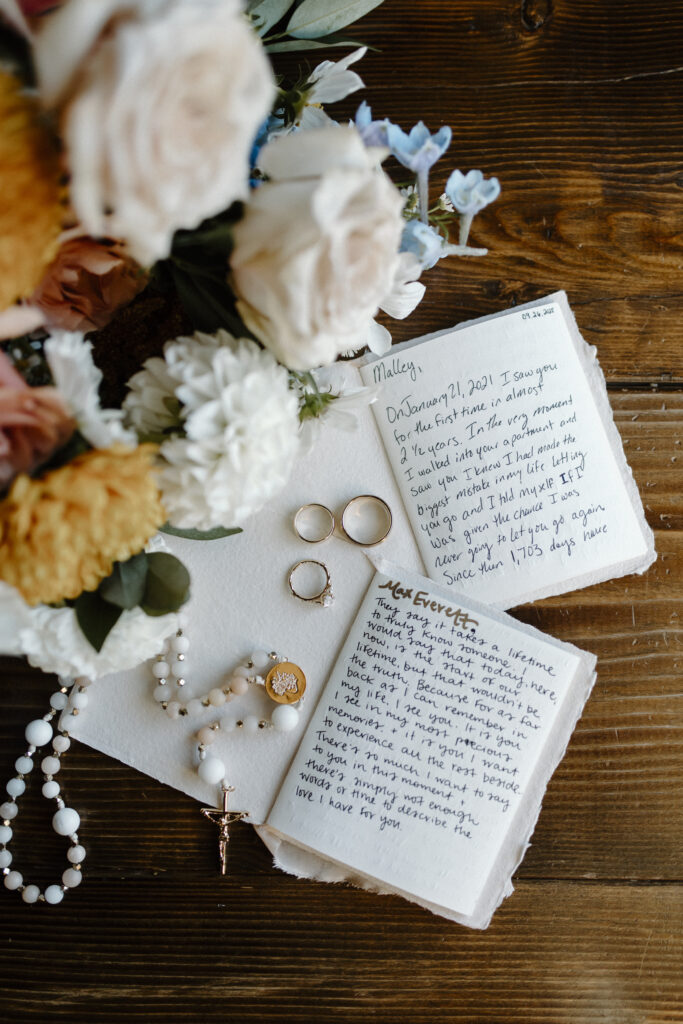 Malley,
On January 21, 2021 I saw you
for the first time in almost
2 ½ years. In the very moment
I walked into your apartment and
saw you I knew I had made the
biggest mistake in my life letting
you go and I told myself If I
was given the chance I was
never going to let you go again.
Since then 1,703 days have
Max Everett,
They say it takes a lifetime
to truly know someone. I
would say that today, here,
now, is the start of our
lifetime, but that wouldn't be
the truth. Because for as far
back as I can remember in
my life, I see you. It is you
I see in my most precious
memories + it is you I want
to experience all the rest beside.
There's so much I want to say
to you in this moment +
there's simply not enough
words or time to describe the
love I have for you.